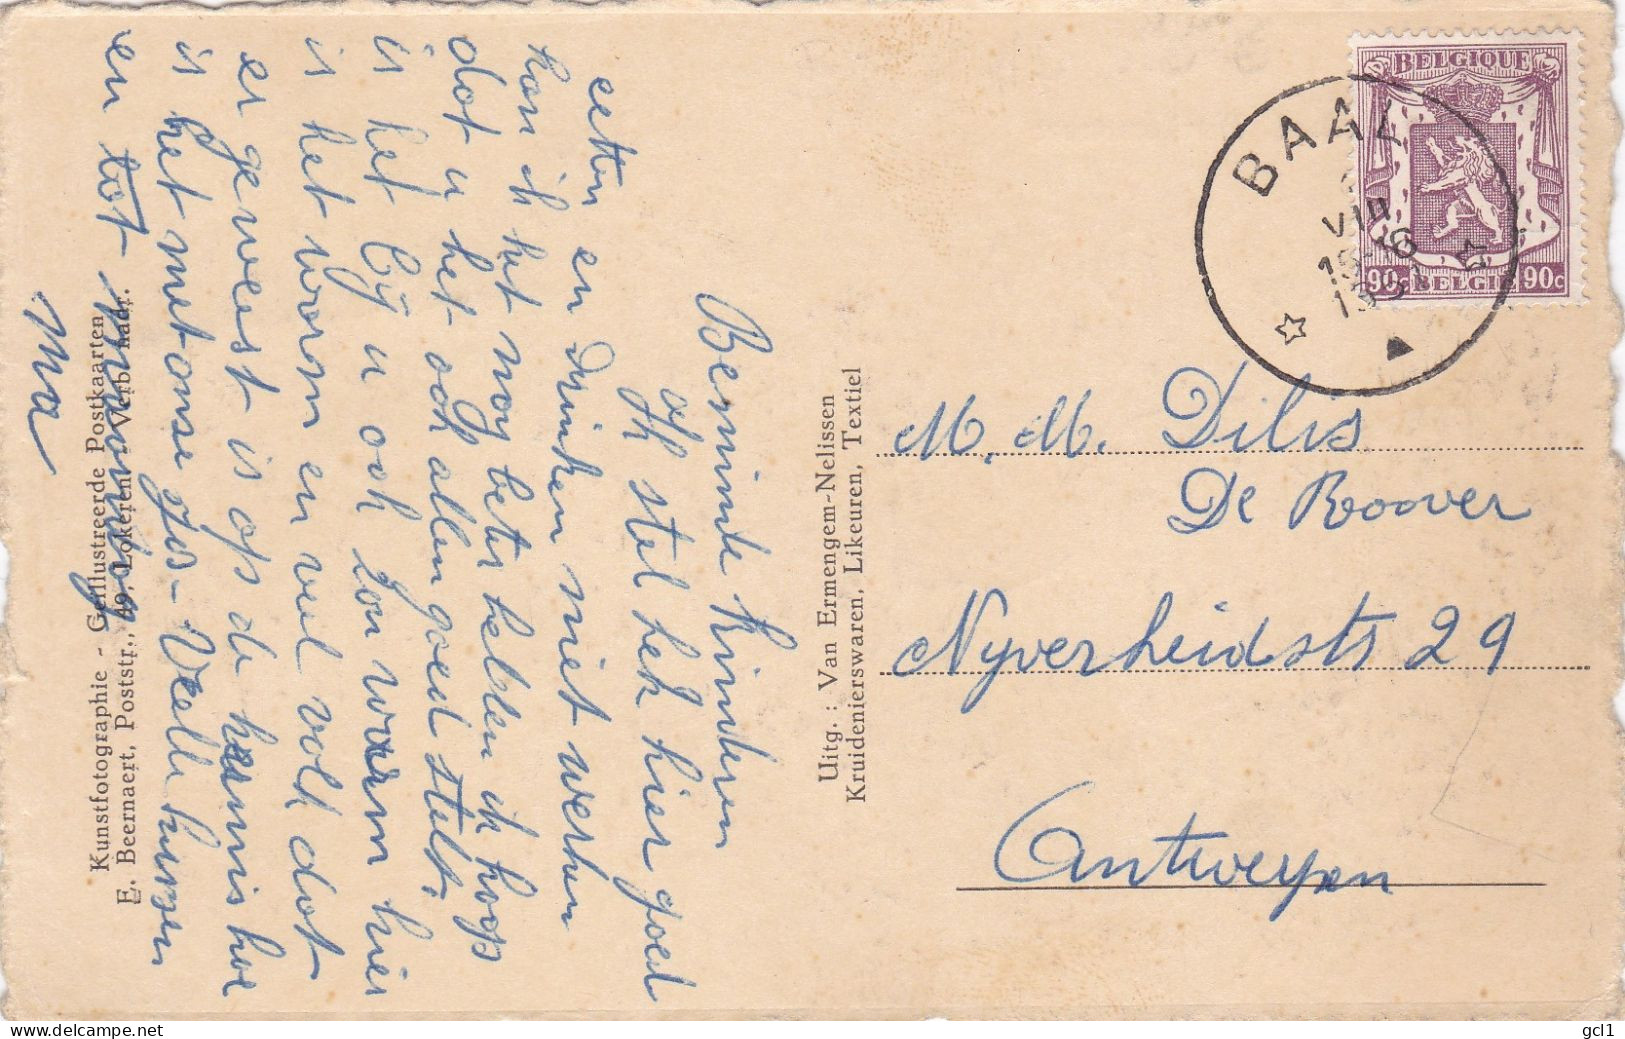 Beminde Kinderen
Ik stel hek hier goed
eeten en drinken niet werken
kan ik het nog beter hebben ik hoop
dat u het ook allen goed stelt.
is het bij u ook zoo warm hier
is het warm en veel volk dat
er geweest is op de kermis hoe
is het met onse Jos - Veele kussen
en tot
Ma
Kunstfotographie - Geïllustreerde Postkaarten
E. Beernaert, Poststr., 49, Lokeren Verb. nadr.
Uitg. : Van Ermengem-Nelissen
Kruidenierswaren, Likeuren, Textiel
BELGIQUE
90c BELGIE 90c
BAAL
VIII
15-16
M. M. Dilis
De Roover
Nyverheidstr 29
Antwerpen
gcl1